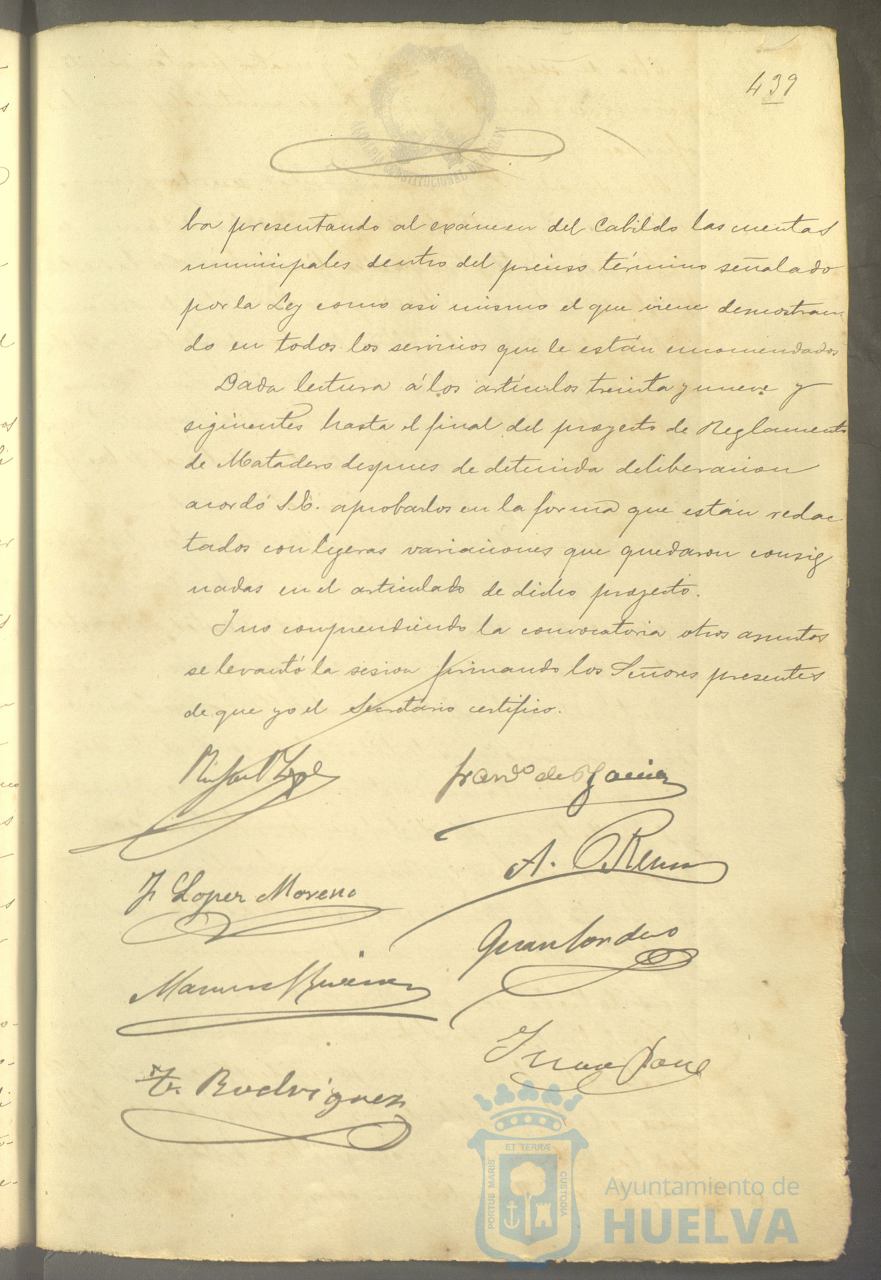 439
ba presentando al exámen del Cabildo las cuentas
municipales dentro del preciso término señalado
por la Ley como asi mismo el que viene demostran
do en todos los servicios que le están encomendados
Dada lectura á los artículos treinta y nueve y
siguientes hasta el final del proyecto de Reglamento
de Matadero despues de detenida deliberacion
acordó S.E. aprobarlos en la forma que están redac
tados con ligeras variaciones que quedaron consig
nadas en el articulado de dicho proyecto.
Y no comprendiendo la convocatoria otros asuntos
se levantó la sesion firmando los Señores presentes
de que yo el Secretario certifico.
Franco de
A.
J. Lopez Moreno
Juan Cordero
Manuel
F. Rodriguez
PORTUS MARIS ET TERRAE CUSTODIA
Ayuntamiento de
HUELVA